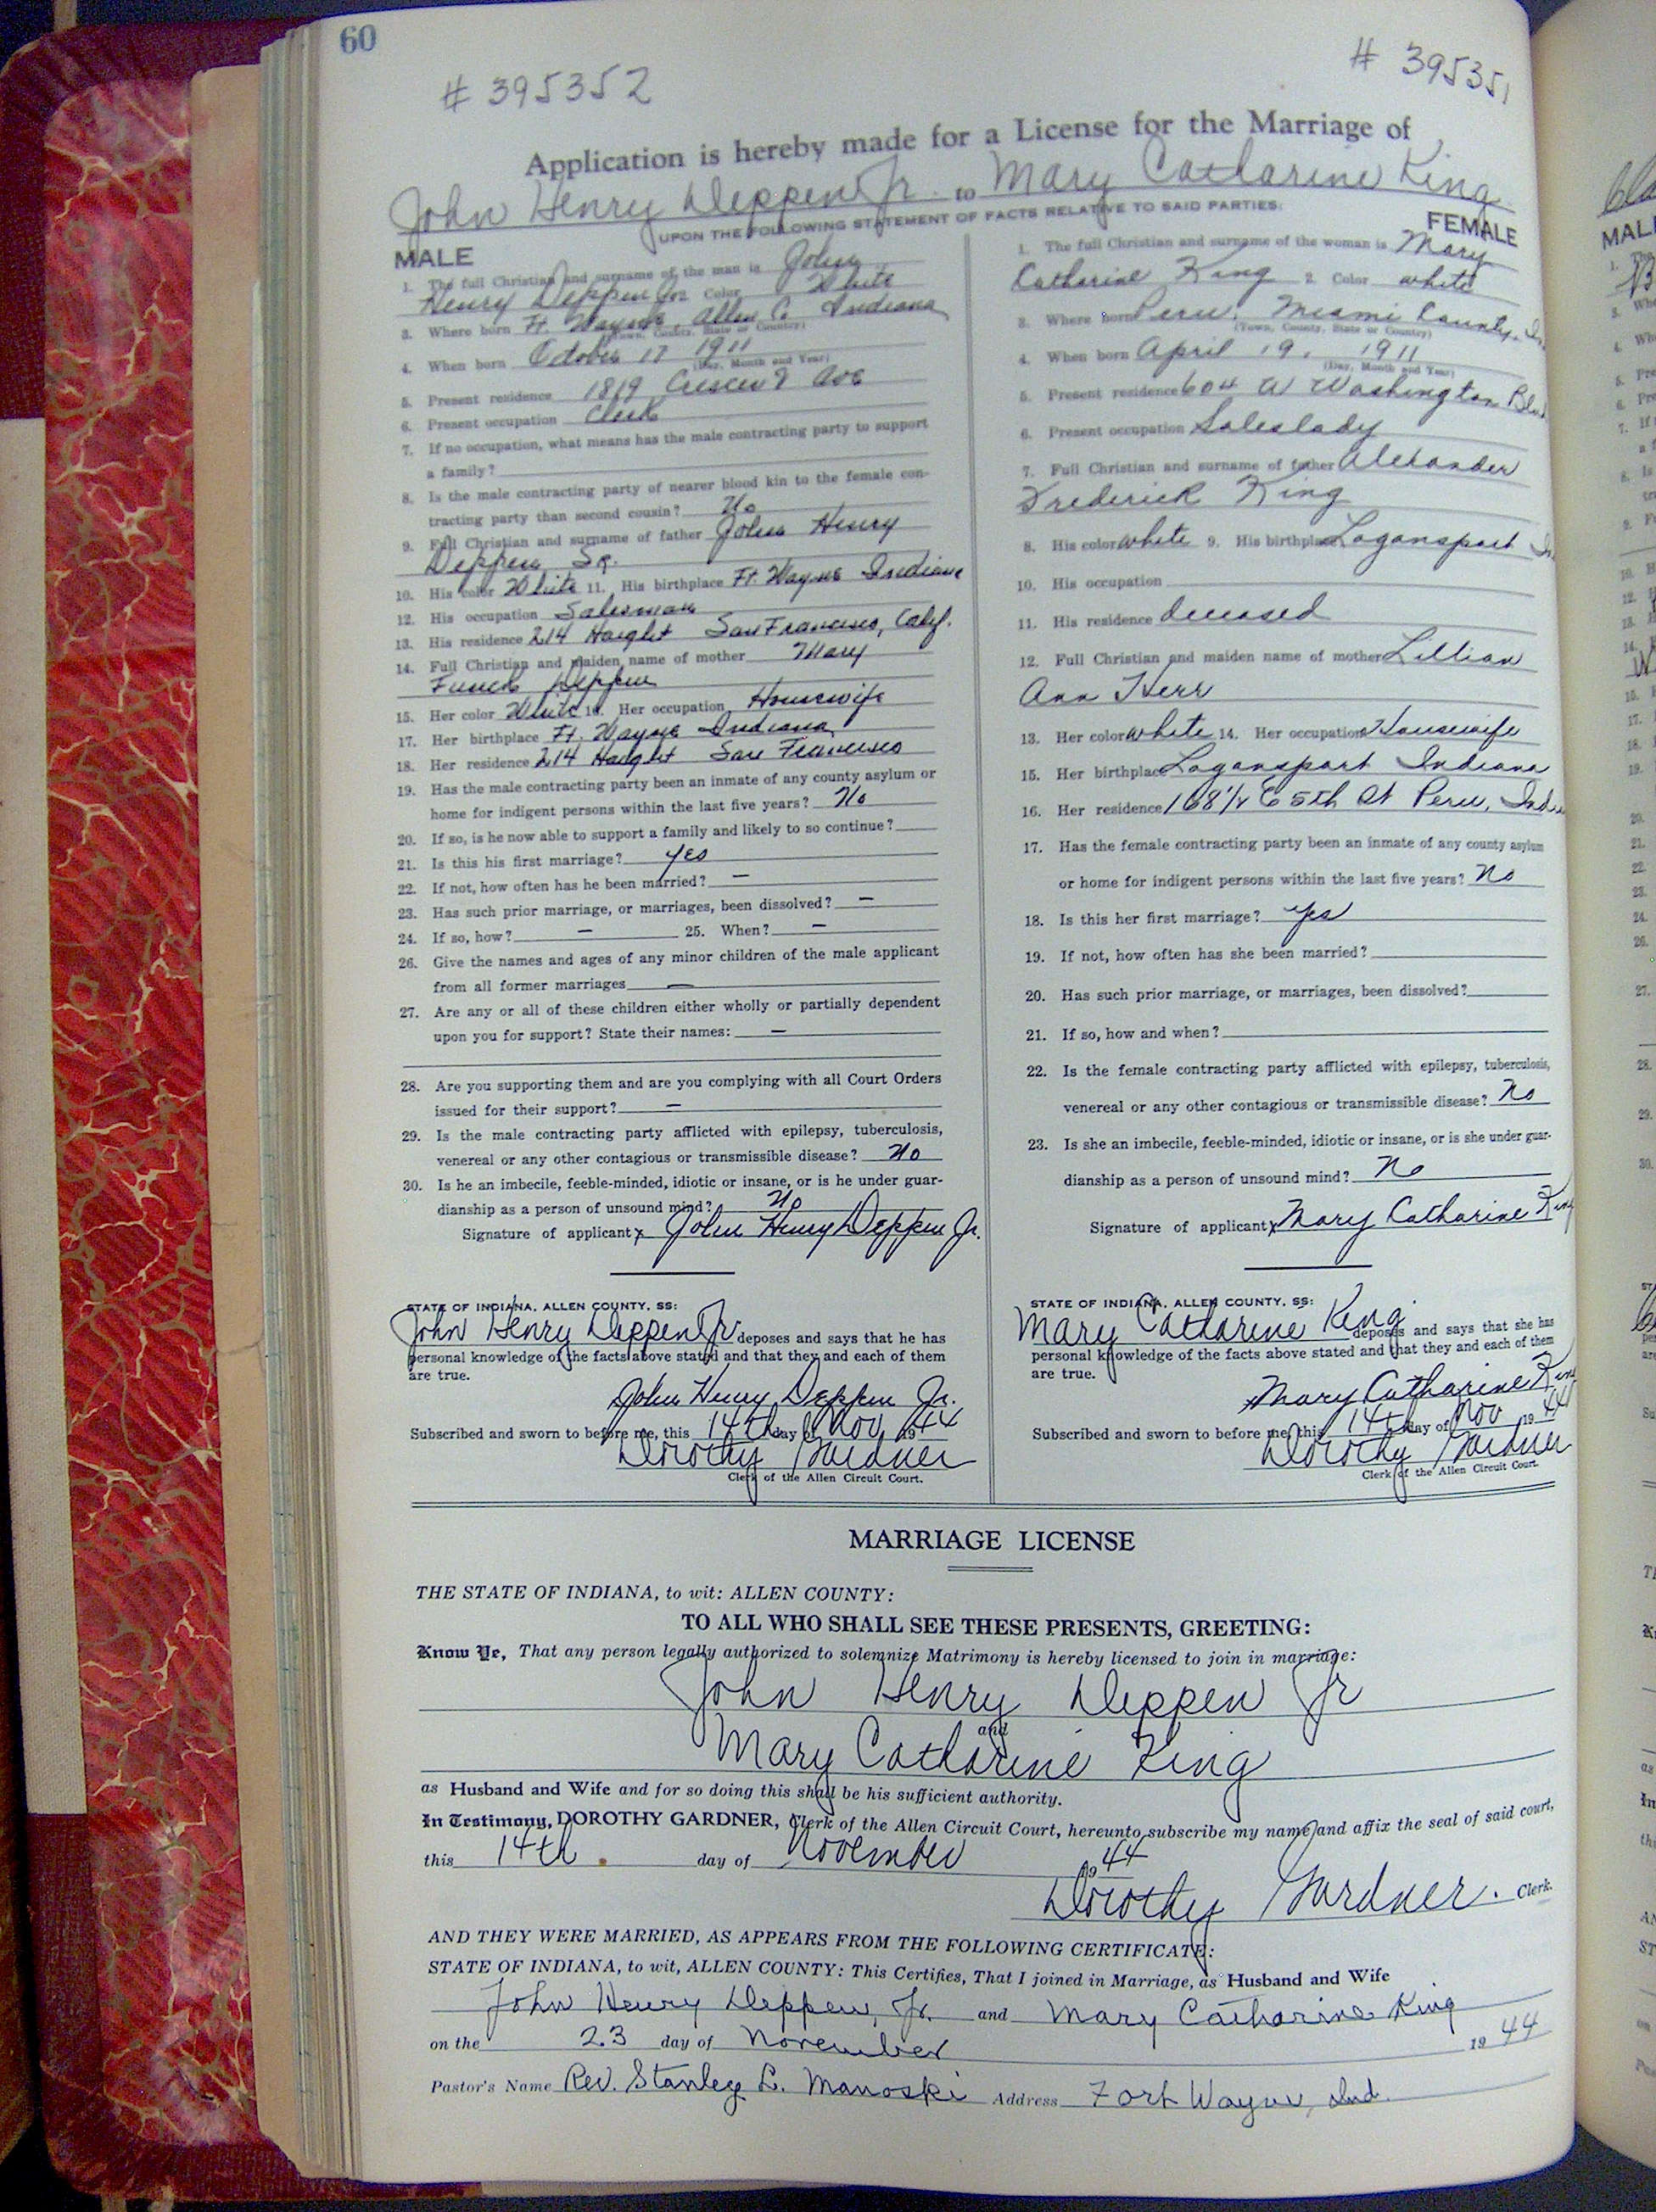 60
# 395352
# 395351
Application is hereby made for a License for the Marriage of
John Henry Deppen Jr. to Mary Catharine King
UPON THE FOLLOWING STATEMENT OF FACTS RELATIVE TO SAID PARTIES:
MALE
1. The full Christian and surname of the man is John
Henry Deppen Jr. 2. Color White
3. Where born Ft. Wayne, Allen Co Indiana
(Town, County, State or Country)
4. When born October 17 1911
(Day, Month and Year)
5. Present residence 1819 Crescent Ave
6. Present occupation Clerk
7. If no occupation, what means has the male contracting party to support
a family?
8. Is the male contracting party of nearer blood kin to the female con-
tracting party than second cousin? No
9. Full Christian and surname of father John Henry
Deppen Sr.
10. His color White 11. His birthplace Ft. Wayne Indiana
12. His occupation Salesman
13. His residence 214 Haight San Francisco, Calif.
14. Full Christian and maiden name of mother Mary
Deppen
15. Her color White 16. Her occupation Housewife
17. Her birthplace Ft. Wayne Indiana
18. Her residence 214 Haight San Francisco
19. Has the male contracting party been an inmate of any county asylum or
home for indigent persons within the last five years? No
20. If so, is he now able to support a family and likely to so continue?
21. Is this his first marriage? yes
22. If not, how often has he been married? –
23. Has such prior marriage, or marriages, been dissolved? –
24. If so, how? – 25. When? –
26. Give the names and ages of any minor children of the male applicant
from all former marriages –
27. Are any or all of these children either wholly or partially dependent
upon you for support? State their names: –
28. Are you supporting them and are you complying with all Court Orders
issued for their support? –
29. Is the male contracting party afflicted with epilepsy, tuberculosis,
venereal or any other contagious or transmissible disease? No
30. Is he an imbecile, feeble-minded, idiotic or insane, or is he under guar-
dianship as a person of unsound mind? No
Signature of applicant x John Henry Deppen Jr.
STATE OF INDIANA, ALLEN COUNTY, SS:
John Henry Deppen Jr. deposes and says that he has
personal knowledge of the facts above stated and that they and each of them
are true.
John Henry Deppen Jr.
Subscribed and sworn to before me, this 14th day of Nov 1944
Dorothy Gardner
Clerk of the Allen Circuit Court.
FEMALE
1. The full Christian and surname of the woman is Mary
Catharine King 2. Color white
3. Where born Peru, Miami County,
(Town, County, State or Country)
4. When born April 19, 1911
(Day, Month and Year)
5. Present residence 604 W Washington Blvd
6. Present occupation Saleslady
7. Full Christian and surname of father Alexander
Frederick King
8. His color white 9. His birthplace Logansport
10. His occupation
11. His residence deceased
12. Full Christian and maiden name of mother Lillian
Ann Herr
13. Her color white 14. Her occupation Housewife
15. Her birthplace Logansport Indiana
16. Her residence 168½ E 5th St Peru,
17. Has the female contracting party been an inmate of any county asylum
or home for indigent persons within the last five years? No
18. Is this her first marriage? yes
19. If not, how often has she been married?
20. Has such prior marriage, or marriages, been dissolved?
21. If so, how and when?
22. Is the female contracting party afflicted with epilepsy, tuberculosis,
venereal or any other contagious or transmissible disease? No
23. Is she an imbecile, feeble-minded, idiotic or insane, or is she under guar-
dianship as a person of unsound mind? No
Signature of applicant x Mary Catharine King
STATE OF INDIANA, ALLEN COUNTY, SS:
Mary Catharine King deposes and says that she has
personal knowledge of the facts above stated and that they and each of them
are true.
Mary Catharine King
Subscribed and sworn to before me, this 14th day of Nov 1944
Dorothy Gardner
Clerk of the Allen Circuit Court.
MARRIAGE LICENSE
THE STATE OF INDIANA, to wit: ALLEN COUNTY:
TO ALL WHO SHALL SEE THESE PRESENTS, GREETING:
Know Ye, That any person legally authorized to solemnize Matrimony is hereby licensed to join in marriage:
John Henry Deppen Jr
and
Mary Catharine King
as Husband and Wife and for so doing this shall be his sufficient authority.
In Testimony, DOROTHY GARDNER, Clerk of the Allen Circuit Court, hereunto subscribe my name and affix the seal of said court,
this 14th day of November 1944
Dorothy Gardner. Clerk.
AND THEY WERE MARRIED, AS APPEARS FROM THE FOLLOWING CERTIFICATE:
STATE OF INDIANA, to wit, ALLEN COUNTY: This Certifies, That I joined in Marriage, as Husband and Wife
John Henry Deppen, Jr. and Mary Catharine King
on the 23 day of November 1944
Pastor's Name Rev. Stanley L. Manoski Address Fort Wayne, Ind.